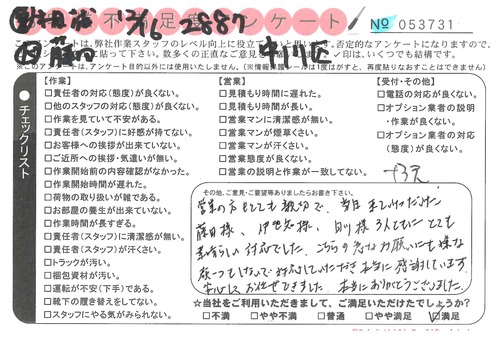 不満足度アンケート
№ 053731
12/16 2887
中川区
このアンケートは、弊社作業スタッフのレベル向上に役立て
否定的なアンケートになりますので、
数多くの正直なご意見を
印は、いくつでも結構です。
※このアンケートは、アンケート目的以外には使用いたしません。(※情報保護シールは1度はがすと、再度貼りなおすことはできません)
チェックリスト
【作業】
□責任者の対応(態度)が良くない。
□他のスタッフの対応(態度)が良くない。
□作業を見ていて不安がある。
□責任者(スタッフ)に好感が持てない。
□お客様への挨拶が出来ていない。
□ご近所への挨拶・気遣いが無い。
□作業開始前の内容確認がなかった。
□作業開始時間が遅れた。
□荷物の取り扱いが雑である。
□お部屋の養生が出来ていない。
□作業時間が長すぎる。
□責任者(スタッフ)に清潔感が無い。
□責任者(スタッフ)が汗くさい。
□トラックが汚い。
□梱包資材が汚い。
□運転が不安(下手)である。
□靴下の履き替えをしてない。
□スタッフにやる気がみられない。
【営業】
□見積もり時間に遅れた。
□見積もり時間が長い。
□営業マンに清潔感が無い。
□営業マンが煙草くさい。
□営業マンが汗くさい。
□営業態度が良くない。
□営業の説明と作業が一致してない。
【受付・その他】
□電話の対応が良くない。
□オプション業者の説明
・作業が良くない。
□オプション業者の対応
(態度)が良くない。
その他、ご意見・ご要望等ありましたらお書き下さい。
営業の方もとても親切で、当日来ていただいた
藤田様、伊世知様、日川様3人ともにとても
素晴らしい対応でした。こちらの急なお願いにも嫌な
顔一つせずに対応していただき本当に感謝しています。
安心してお任せできました。本当にありがとうございました。
☆当社をご利用いただきまして、ご満足いただけたでしょうか?
□不満 □やや不満 □普通 □やや満足 ☑満足